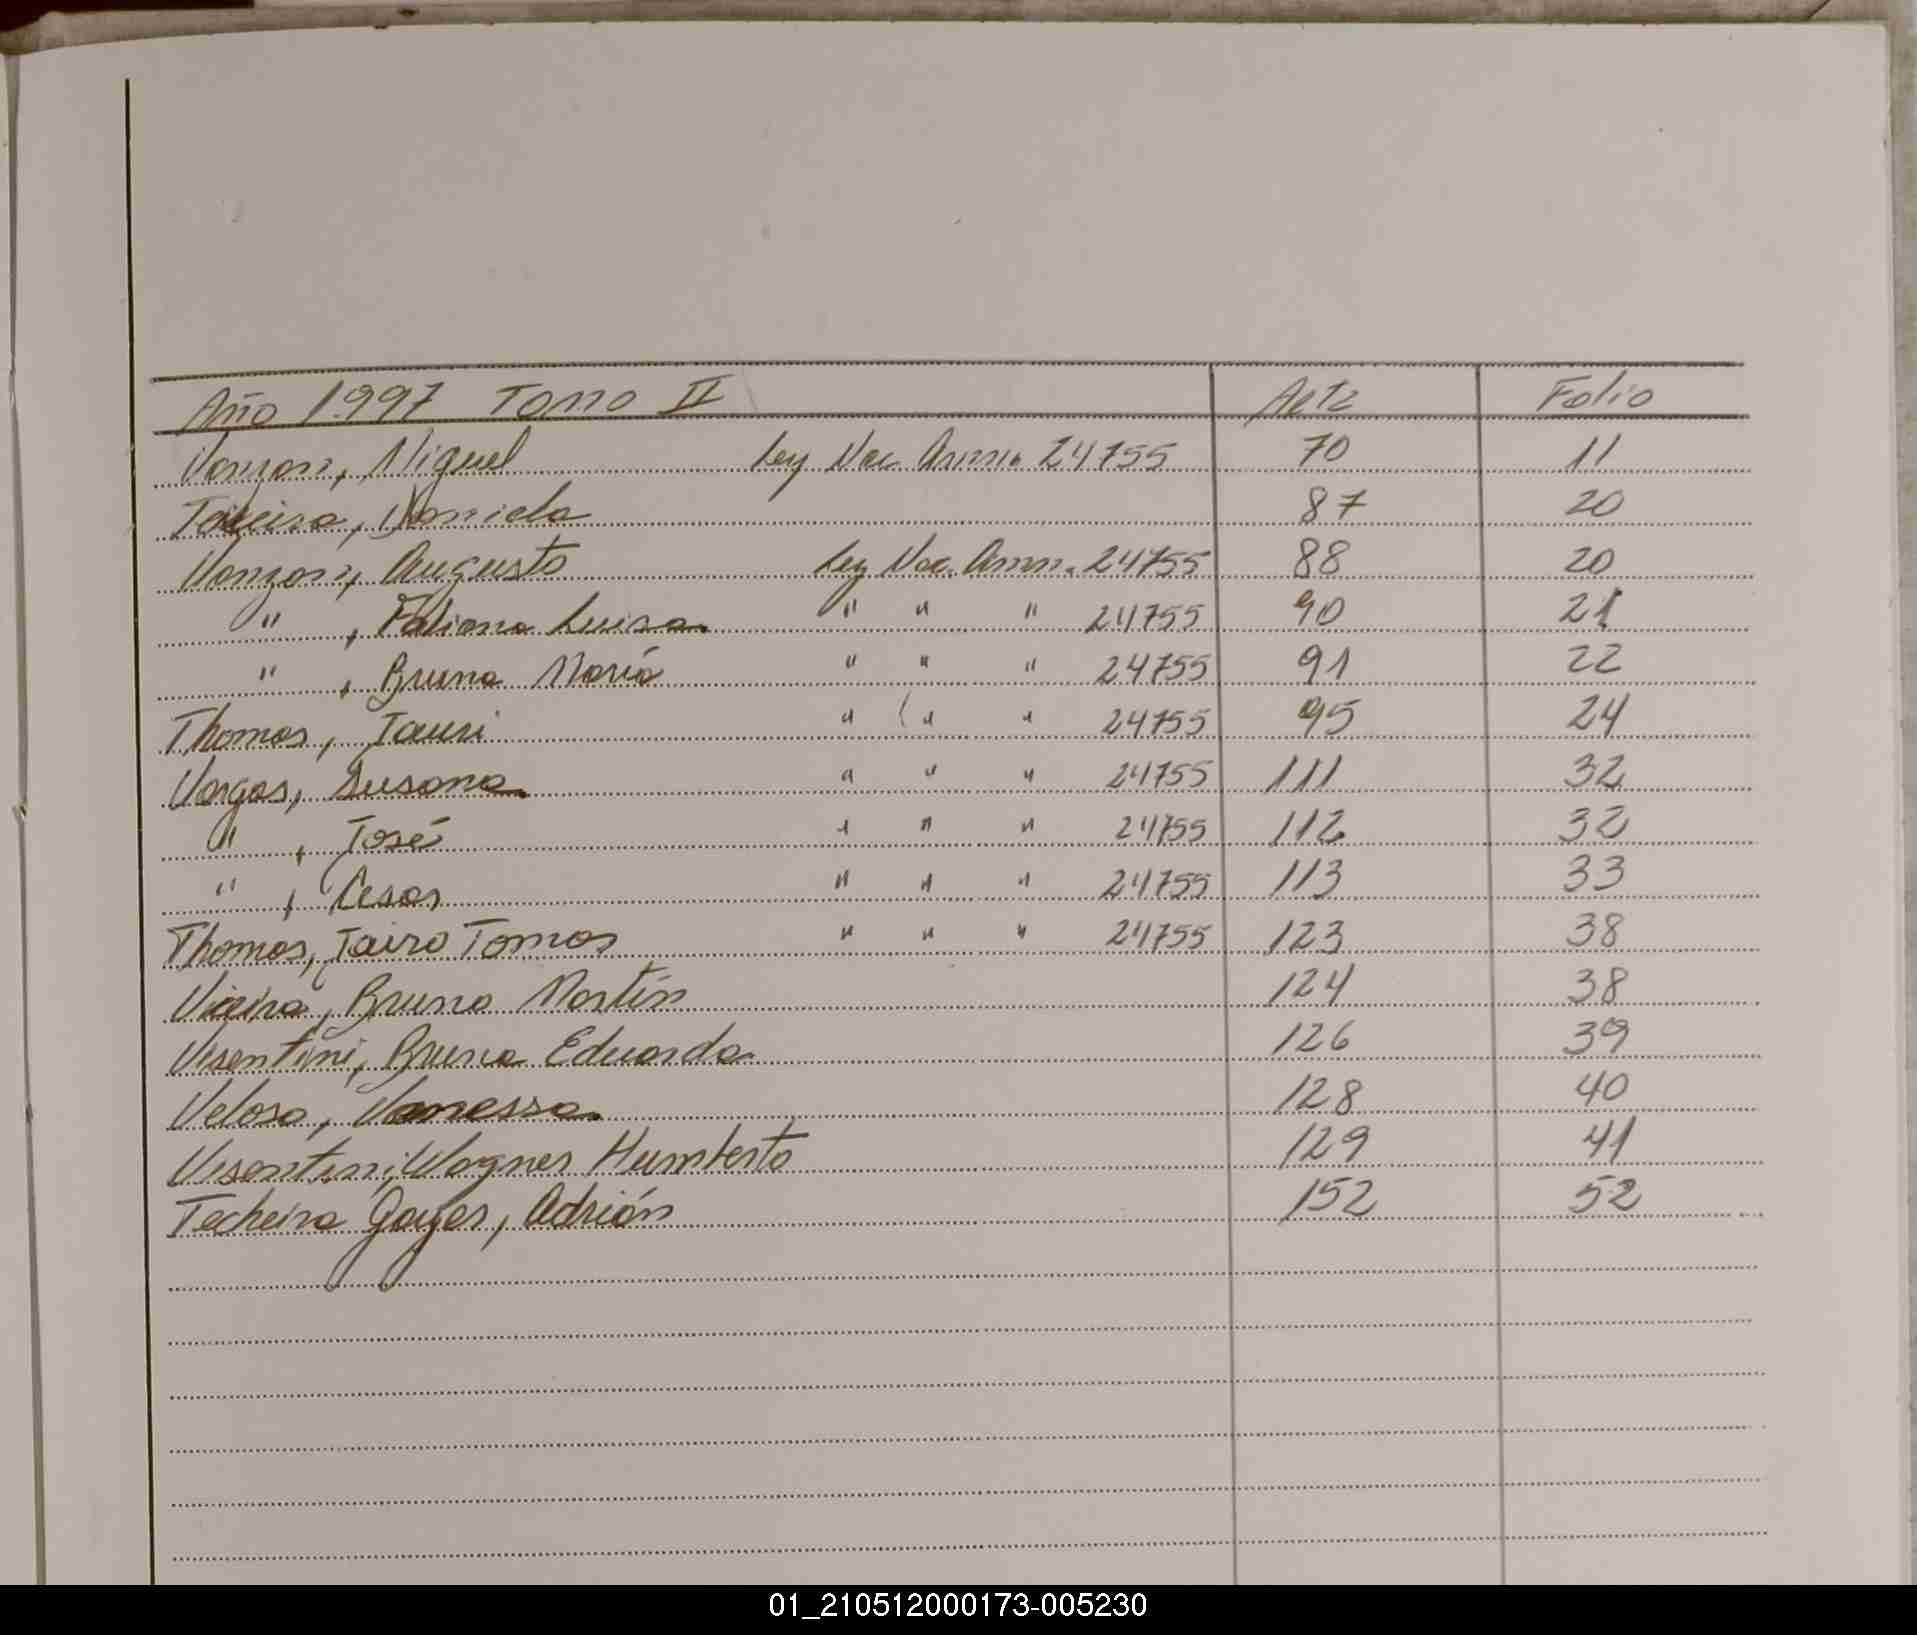 Año 1997 Tomo II Acta Folio
Vanzan, Miguel Ley Nac. Arnn. 24755 70 11
Taxeira, Daniela 87 20
Vanzan, Augusto Ley Nac. Arnn. 24755 88 20
" , Fabiana Luisa " " " 24755 90 21
" , Bruna María " " " 24755 91 22
Thomas, Iauri " " " 24755 95 24
Vargas, Susana " " " 24755 111 32
" , José " " " 24755 112 32
" , Cesar " " " 24755 113 33
Thomas, Jairo Tomas " " " 24755 123 38
Vieira, Bruno Martín 124 38
Visentini, Bruna Eduarda 126 39
Veloso, Vanessa 128 40
Visentini, Wagner Humberto 129 41
Techeira Goyer, Adrián 152 52
01_210512000173-005230